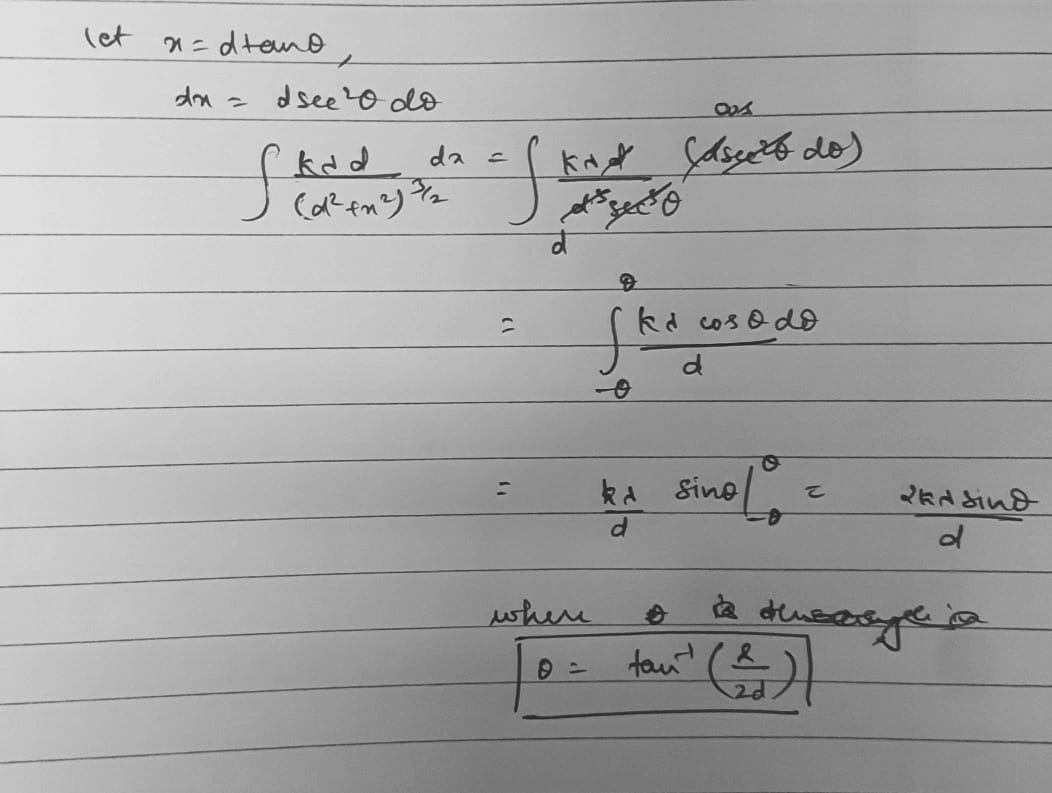 let x = d tanθ,
dx = d sec²θ dθ
∫ kλd/(d²+x²)^(3/2) dx = ∫ kλd/(d³ sec³θ) (d sec²θ dθ) cos d
= ∫_{-θ}^{θ} kλ cosθ dθ / d
= kλ/d sinθ |_{-θ}^{θ} = 2kλ sinθ / d
where θ is
θ = tan⁻¹(l/2d)